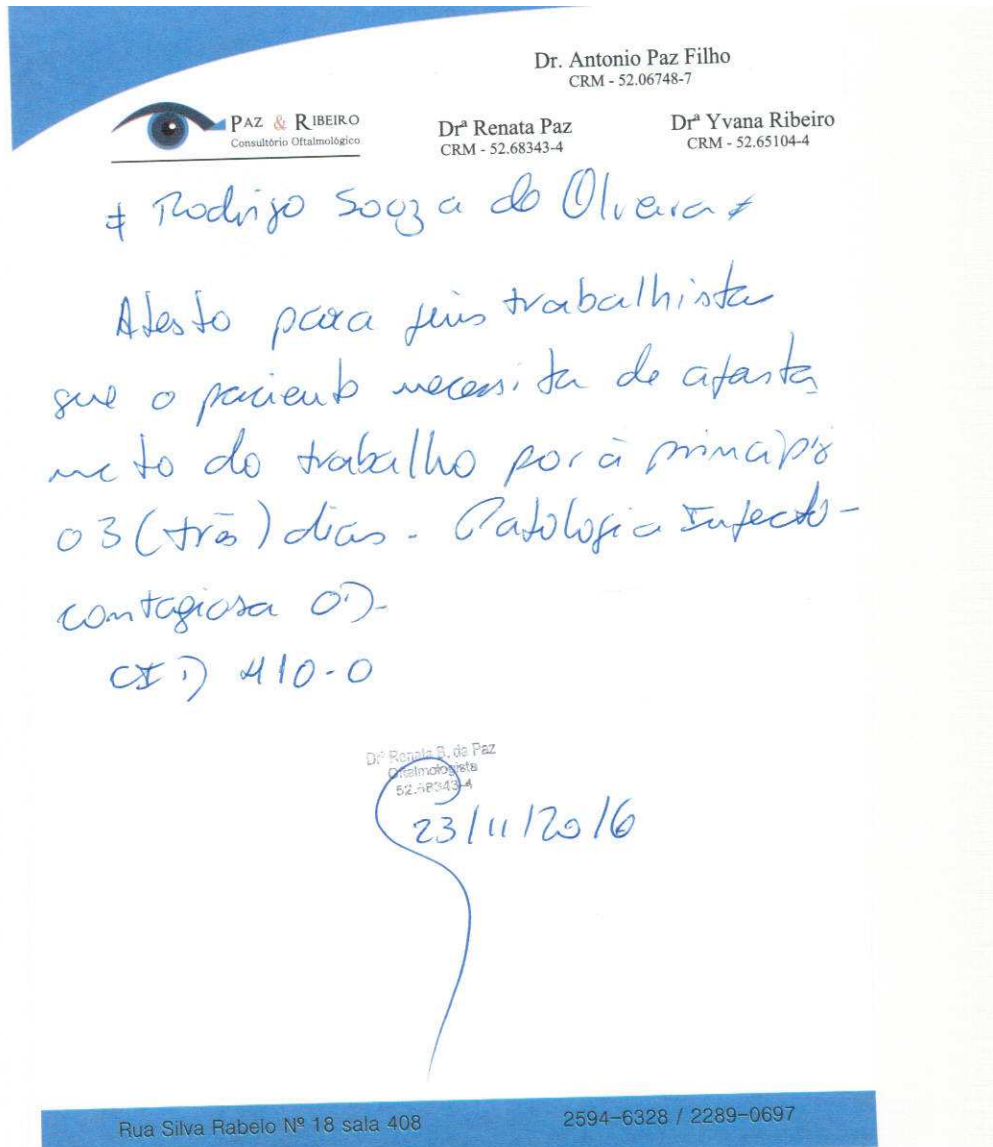 Dr. Antonio Paz Filho
CRM - 52.06748-7
PAZ & RIBEIRO
Consultório Oftalmológico
Drª Renata Paz
CRM - 52.68343-4
Drª Yvana Ribeiro
CRM - 52.65104-4
# Rodrigo Souza de Oliveira #
Atesto para fins trabalhista
que o paciente necessita de afasta
meto do trabalho por à princípio
03 (três) dias. Patologia Infecto-
contagiosa OD.
CID H10-0
Drª Renata B. da Paz
Oftalmologista
52.68343-4
23/11/2016
Rua Silva Rabelo Nº 18 sala 408
2594-6328 / 2289-0697